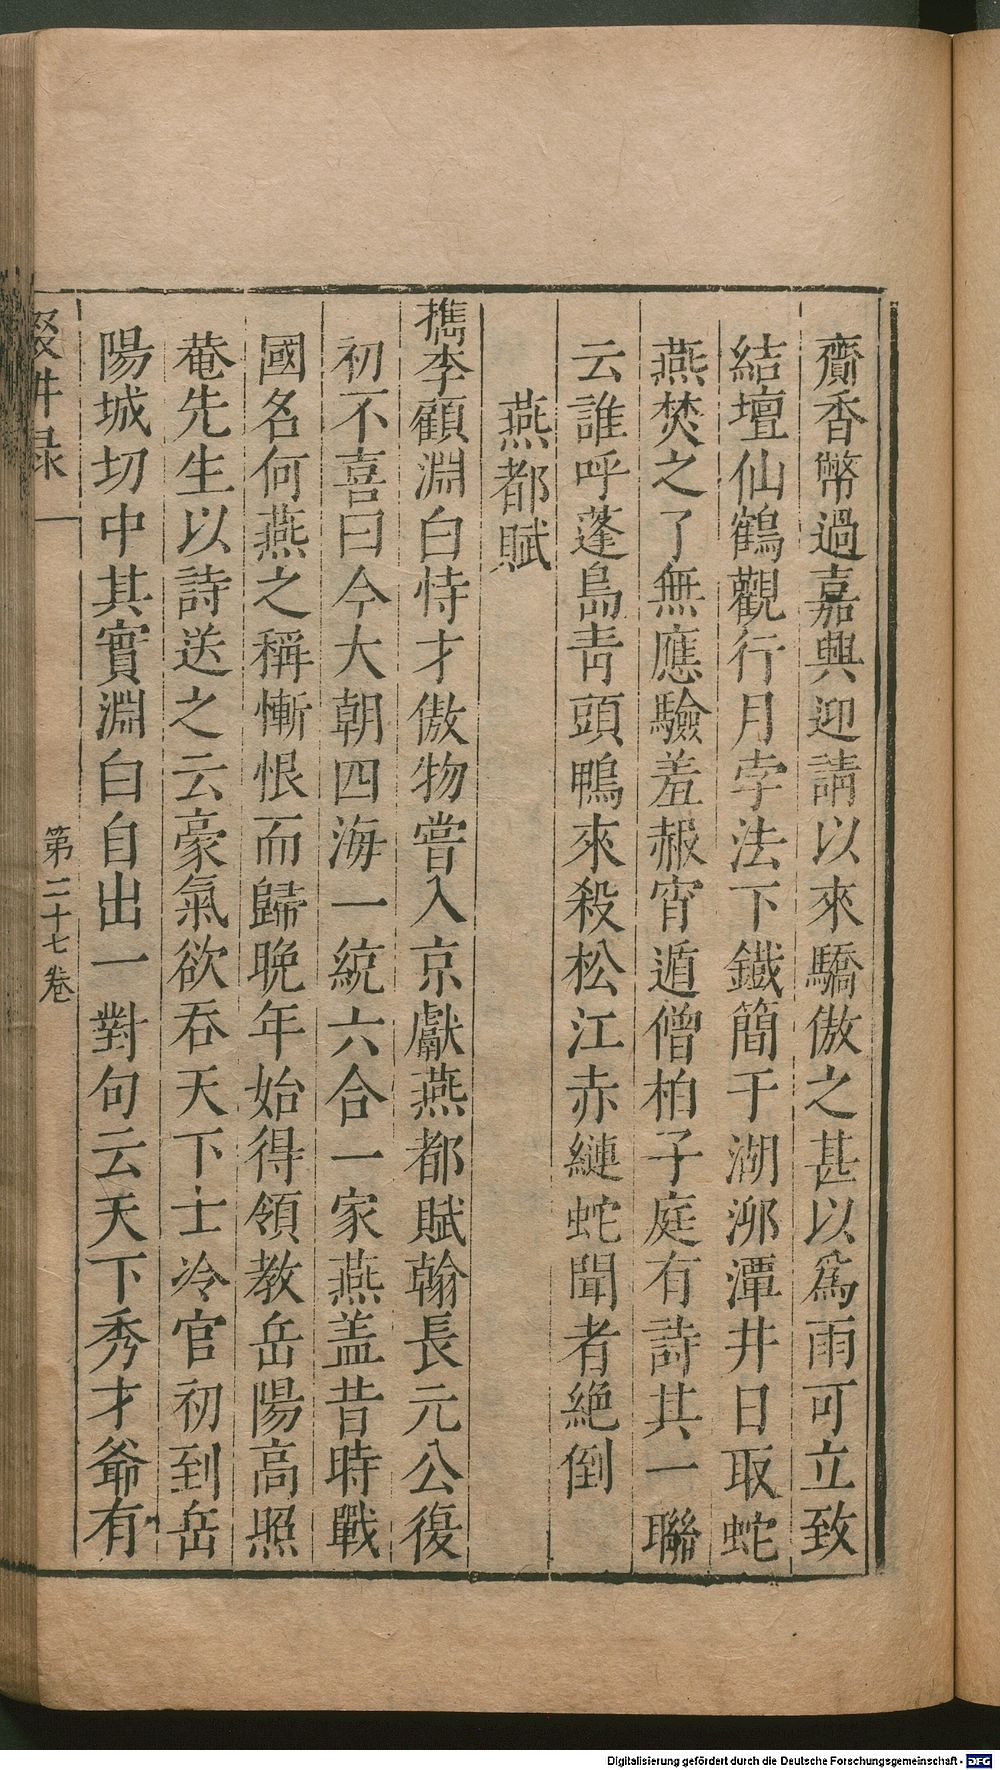 齎香幣過嘉興迎請以來驕傲之甚以爲雨可立致
結壇仙鶴觀行月孛法下鐵簡于湖泖潭井日取蛇
燕焚之了無應驗羞赧宵遁僧柏子庭有詩其一聯
云誰呼蓬島靑頭鴨來殺松江赤練蛇聞者絶倒
燕都賦
攜李顧淵白恃才傲物嘗入京獻燕都賦翰長元公復
初不喜曰今大朝四海一統六合一家燕盖昔時戰
國名何燕之稱慚恨而歸晩年始得領教岳陽高照
菴先生以詩送之云豪氣欲吞天下士冷官初到岳
陽城切中其實淵白自出一對句云天下秀才爺有
輟畊录
第二十七卷
Digitalisierung gefördert durch die Deutsche Forschungsgemeinschaft - DFG